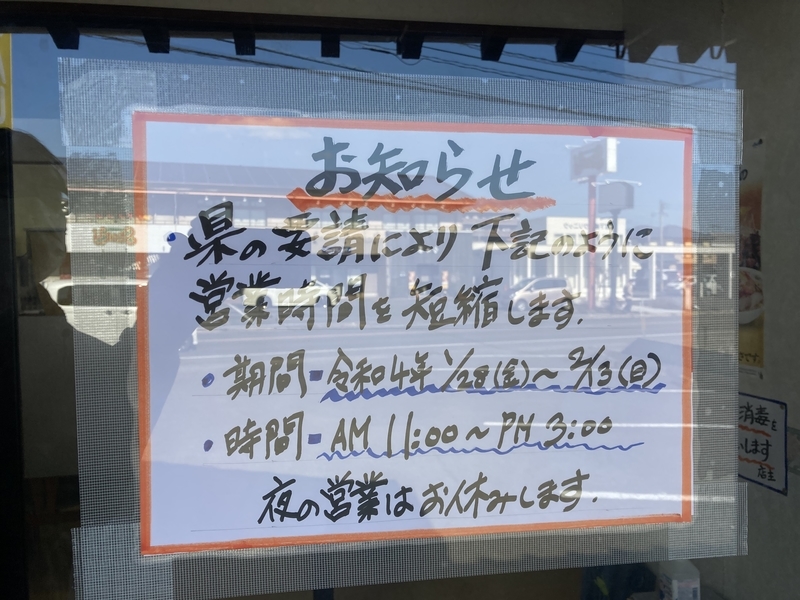 お知らせ
・県の要請により下記のように
営業時間を短縮します.
・期間-令和4年1/28(金)~2/13(日)
・時間-AM 11:00~PM 3:00
夜の営業はお休みします.
消毒を
います
店主